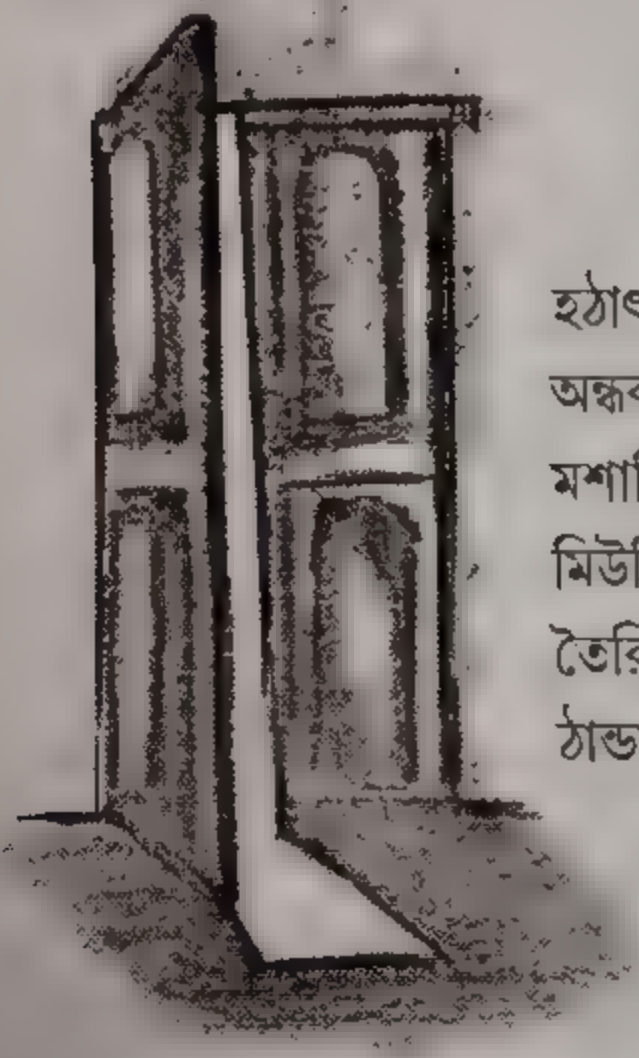 হঠাৎ
অন্ধ
মশা
মিউ
তৈরি
ঠান্ড